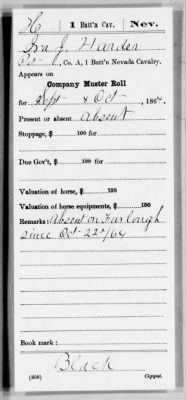 H 1 Batt'n Cav. Nev.
Ira J. Harder
Co. A, 1 Batt'n Nevada Cavalry.
Appears on
Company Muster Roll
for Sept & Oct, 1864.
Present or absent Absent
Stoppage, $ 100 for
Due Gov't, $ 100 for
Valuation of horse, $ 100
Valuation of horse equipments, $ 100
Remarks: Absent on Furlough
since Oct 22d/64
Book mark:
Black
(358) Copyist.